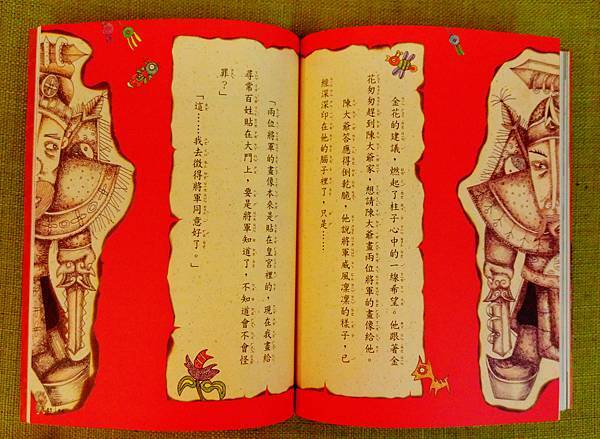 金花的建議，燃起了柱子心中的一線希望。他跟著金
花匆匆趕到陳大爺家，想請陳大爺畫兩位將軍的畫像給他。
陳大爺答應得倒乾脆，他說將軍威風凜凜的樣子，已
經深深印在他的腦子裡了，只是……
「兩位將軍的畫像本來是貼在皇宮裡的，現在我畫給
尋常百姓貼在大門上，要是將軍知道了，不知道會不會怪
罪？」
「這……我去徵得將軍同意好了。」